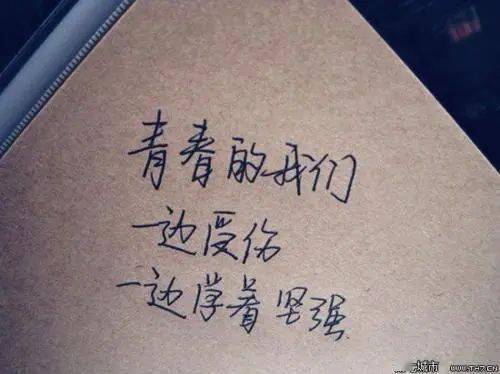 青春的我们
一边受伤
一边学着坚强
城市
WWW.TA7.CN